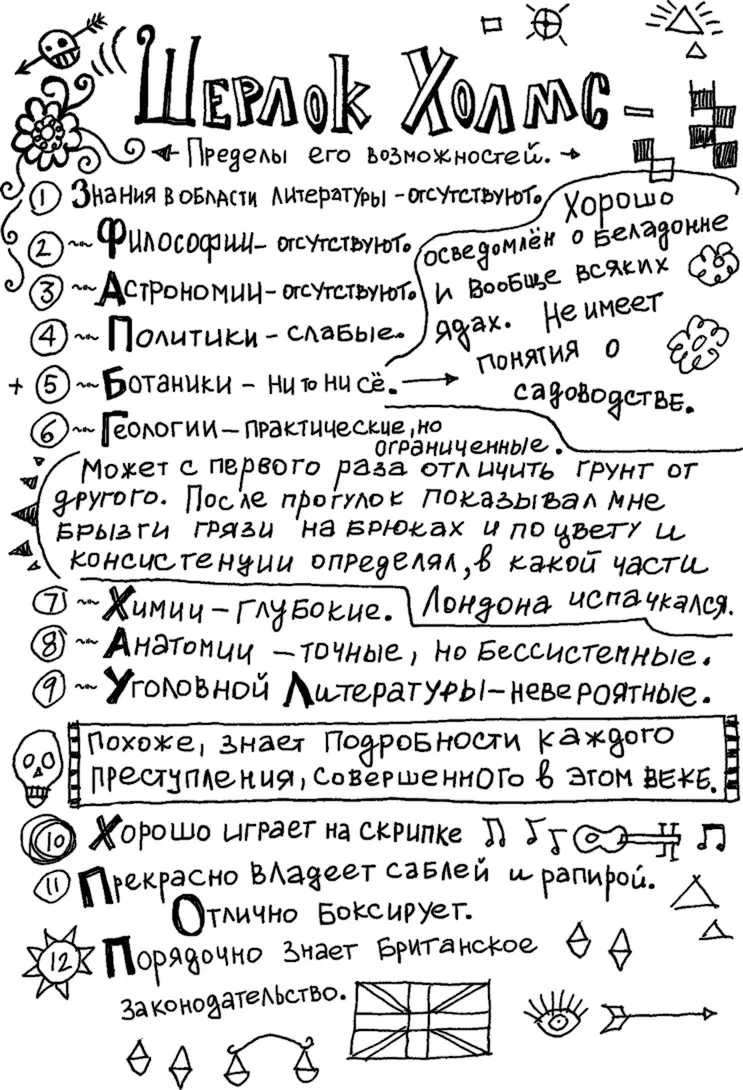 Шерлок Холмс –
Пределы его возможностей.
1 Знания в области литературы – отсутствуют.
2 ~ Философии – отсутствуют.
3 ~ Астрономии – отсутствуют.
4 ~ Политики – слабые.
+ 5 ~ Ботаники – ни то ни сё. →
Хорошо
осведомлён о беладонне
и вообще всяких
ядах. Не имеет
понятия о
садоводстве.
6 ~ Геологии – практические, но
ограниченные.
Может с первого раза отличить грунт от
другого. После прогулок показывал мне
брызги грязи на брюках и по цвету и
консистенции определял, в какой части
Лондона испачкался.
7 ~ Химии – глубокие.
8 ~ Анатомии – точные, но бессистемные.
9 ~ Уголовной Литературы – невероятные.
Похоже, знает подробности каждого
преступления, совершенного в этом веке.
10 Хорошо играет на скрипке
11 Прекрасно владеет саблей и рапирой.
Отлично боксирует.
12 Порядочно знает Британское
законодательство.